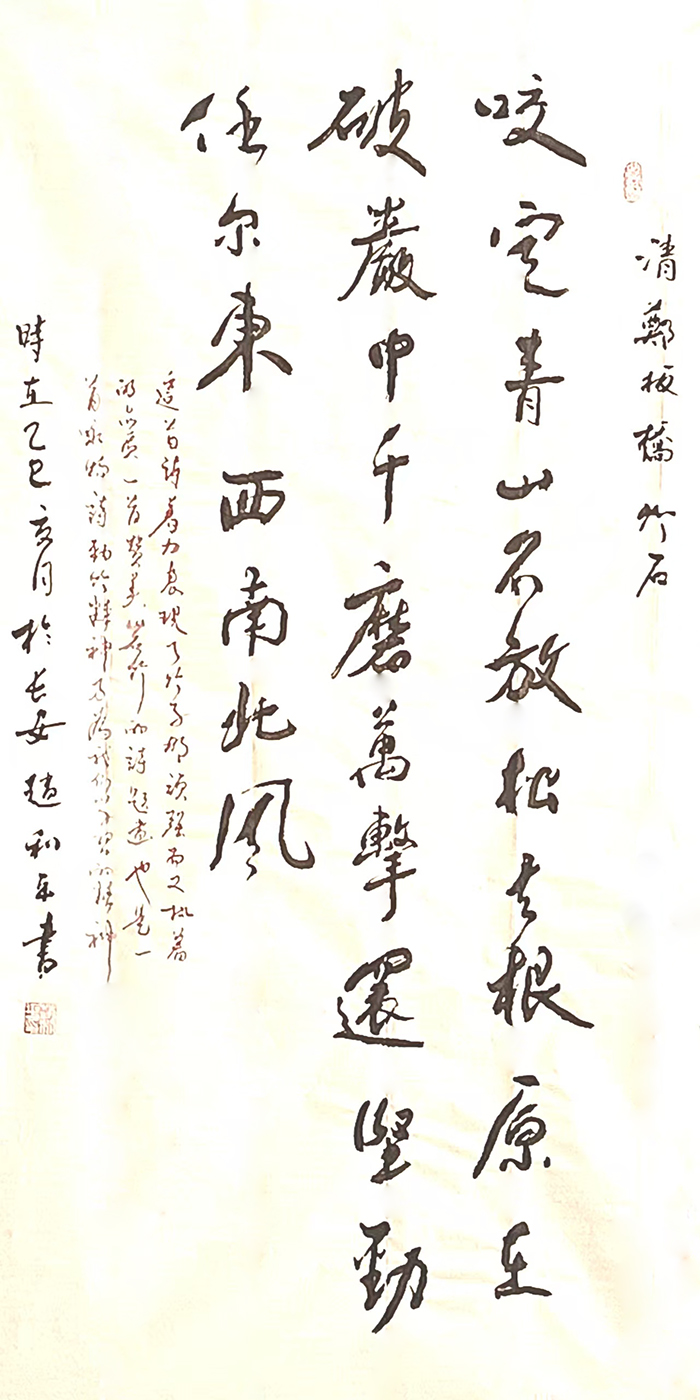 清鄭板橋竹石
咬定青山不放松立根原在
破巖中千磨萬擊還堅勁
任尔東西南北风
這首詩着力表現了竹子那頑強而又执着
的品质一首赞美岩竹的詩題畫也是一
首咏物詩勁竹精神
時在乙巳夏月於长安趙利平書